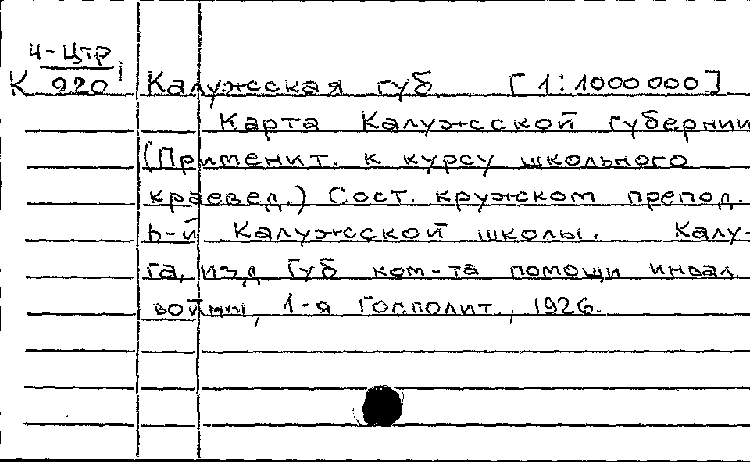 4-Цтр
К 920 i Калужсская губ [1:1000000]
Карта Калужсской губернии
(Применит. к курсу школьного
краевед.) Сост. кружском препод.
ь-й Калужсской школы. Калу-
га, изд Губ ком-та помощи инвал
войны, 1-я Госполит., 1926.